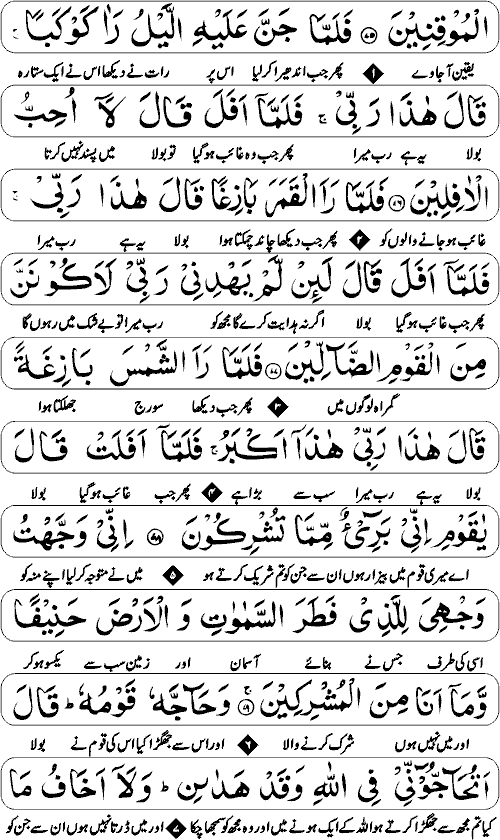 الْمُوْقِنِيْنَ ﴿۷۵﴾ فَلَمَّا جَنَّ عَلَيْهِ الَّيْلُ رَاٰ كَوْكَبًا ۚ
یقین آجاوے ۱ پھر جب اندھیرا کر لیا اس پر رات نے دیکھا اس نے ایک ستارہ
قَالَ هٰذَا رَبِّيْ ۚ فَلَمَّاۤ اَفَلَ قَالَ لَاۤ اُحِبُّ
بولا یہ ہے رب میرا پھر جب وہ غائب ہو گیا تو بولا میں پسند نہیں کرتا
الْاٰفِلِيْنَ ﴿۷۶﴾ فَلَمَّا رَاَ الْقَمَرَ بَازِغًا قَالَ هٰذَا رَبِّيْ ۚ
غائب ہو جانے والوں کو ۲ پھر جب دیکھا چاند چمکتا ہوا بولا یہ ہے رب میرا
فَلَمَّاۤ اَفَلَ قَالَ لَئِنْ لَّمْ يَهْدِنِيْ رَبِّيْ لَاَكُوْنَنَّ
پھر جب غائب ہو گیا بولا اگر نہ ہدایت کرے گا مجھ کو رب میرا تو بے شک میں رہوں گا
مِنَ الْقَوْمِ الضَّآلِّيْنَ ﴿۷۷﴾ فَلَمَّا رَاَ الشَّمْسَ بَازِغَةً
گمراہ لوگوں میں ۳ پھر جب دیکھا سورج جھلکتا ہوا
قَالَ هٰذَا رَبِّيْ هٰذَاۤ اَكْبَرُ ۚ فَلَمَّاۤ اَفَلَتْ قَالَ
بولا یہ ہے رب میرا سب سے بڑا ہے ۴ پھر جب غائب ہو گیا بولا
يٰقَوْمِ اِنِّيْ بَرِيْٓءٌ مِّمَّا تُشْرِكُوْنَ ﴿۷۸﴾ اِنِّيْ وَجَّهْتُ
اے میری قوم میں بیزار ہوں ان سے جن کو تم شریک کرتے ہو ۵ میں نے متوجہ کر لیا اپنے منہ کو
وَجْهِيَ لِلَّذِيْ فَطَرَ السَّمٰوٰتِ وَ الْاَرْضَ حَنِيْفًا
اسی کی طرف جس نے بنائے آسمان اور زمین سب سے یکسو ہو کر
وَّمَاۤ اَنَا مِنَ الْمُشْرِكِيْنَ ﴿۷۹﴾ وَحَآجَّهٗ قَوْمُهٗ ؕ قَالَ
اور میں نہیں ہوں شرک کرنے والا ۶ اور اس سے جھگڑا کیا اس کی قوم نے بولا
اَتُحَآجُّوْٓنِّيْ فِي اللّٰهِ وَقَدْ هَدٰىنِ ؕ وَلَاۤ اَخَافُ مَا
کیا تم مجھ سے جھگڑا کرتے ہو اللہ کے ایک ہونے میں اور وہ مجھ کو سمجھا چکا ۷ اور میں ڈرتا نہیں ہوں ان سے جن کو